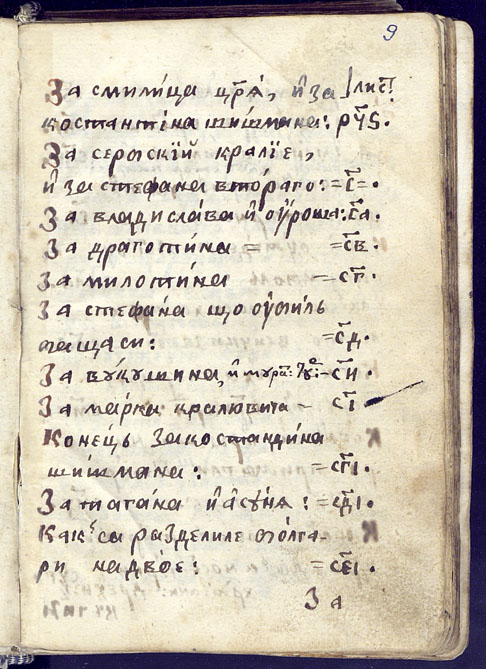 9
За смилица цр҃ѧ̀, и҆ за лис҃т:
костантіна шишмана: рч҃ѕ.
За серпскїй кралїе,
и҆ за стефана вто́раго: =с҃=.
За владисла́ва и҆ ᲂу҆роша: с҃а.
За драготина = =с҃в.
За милотина — с҃г.
За стефа́на що ᲂу҆филь
тащаси: =с҃д.
За вꙋкашина, и҆ мꙋра: —с҃и.
За марка кралювита — с҃і.
Коне́цъ за костандина
шишмана: =с҃гі.
За татана и҆ а҆сѹнѧ: =с҃ді.
Какъ са разделиле болга-
ри надво́е: =с҃еі.
За